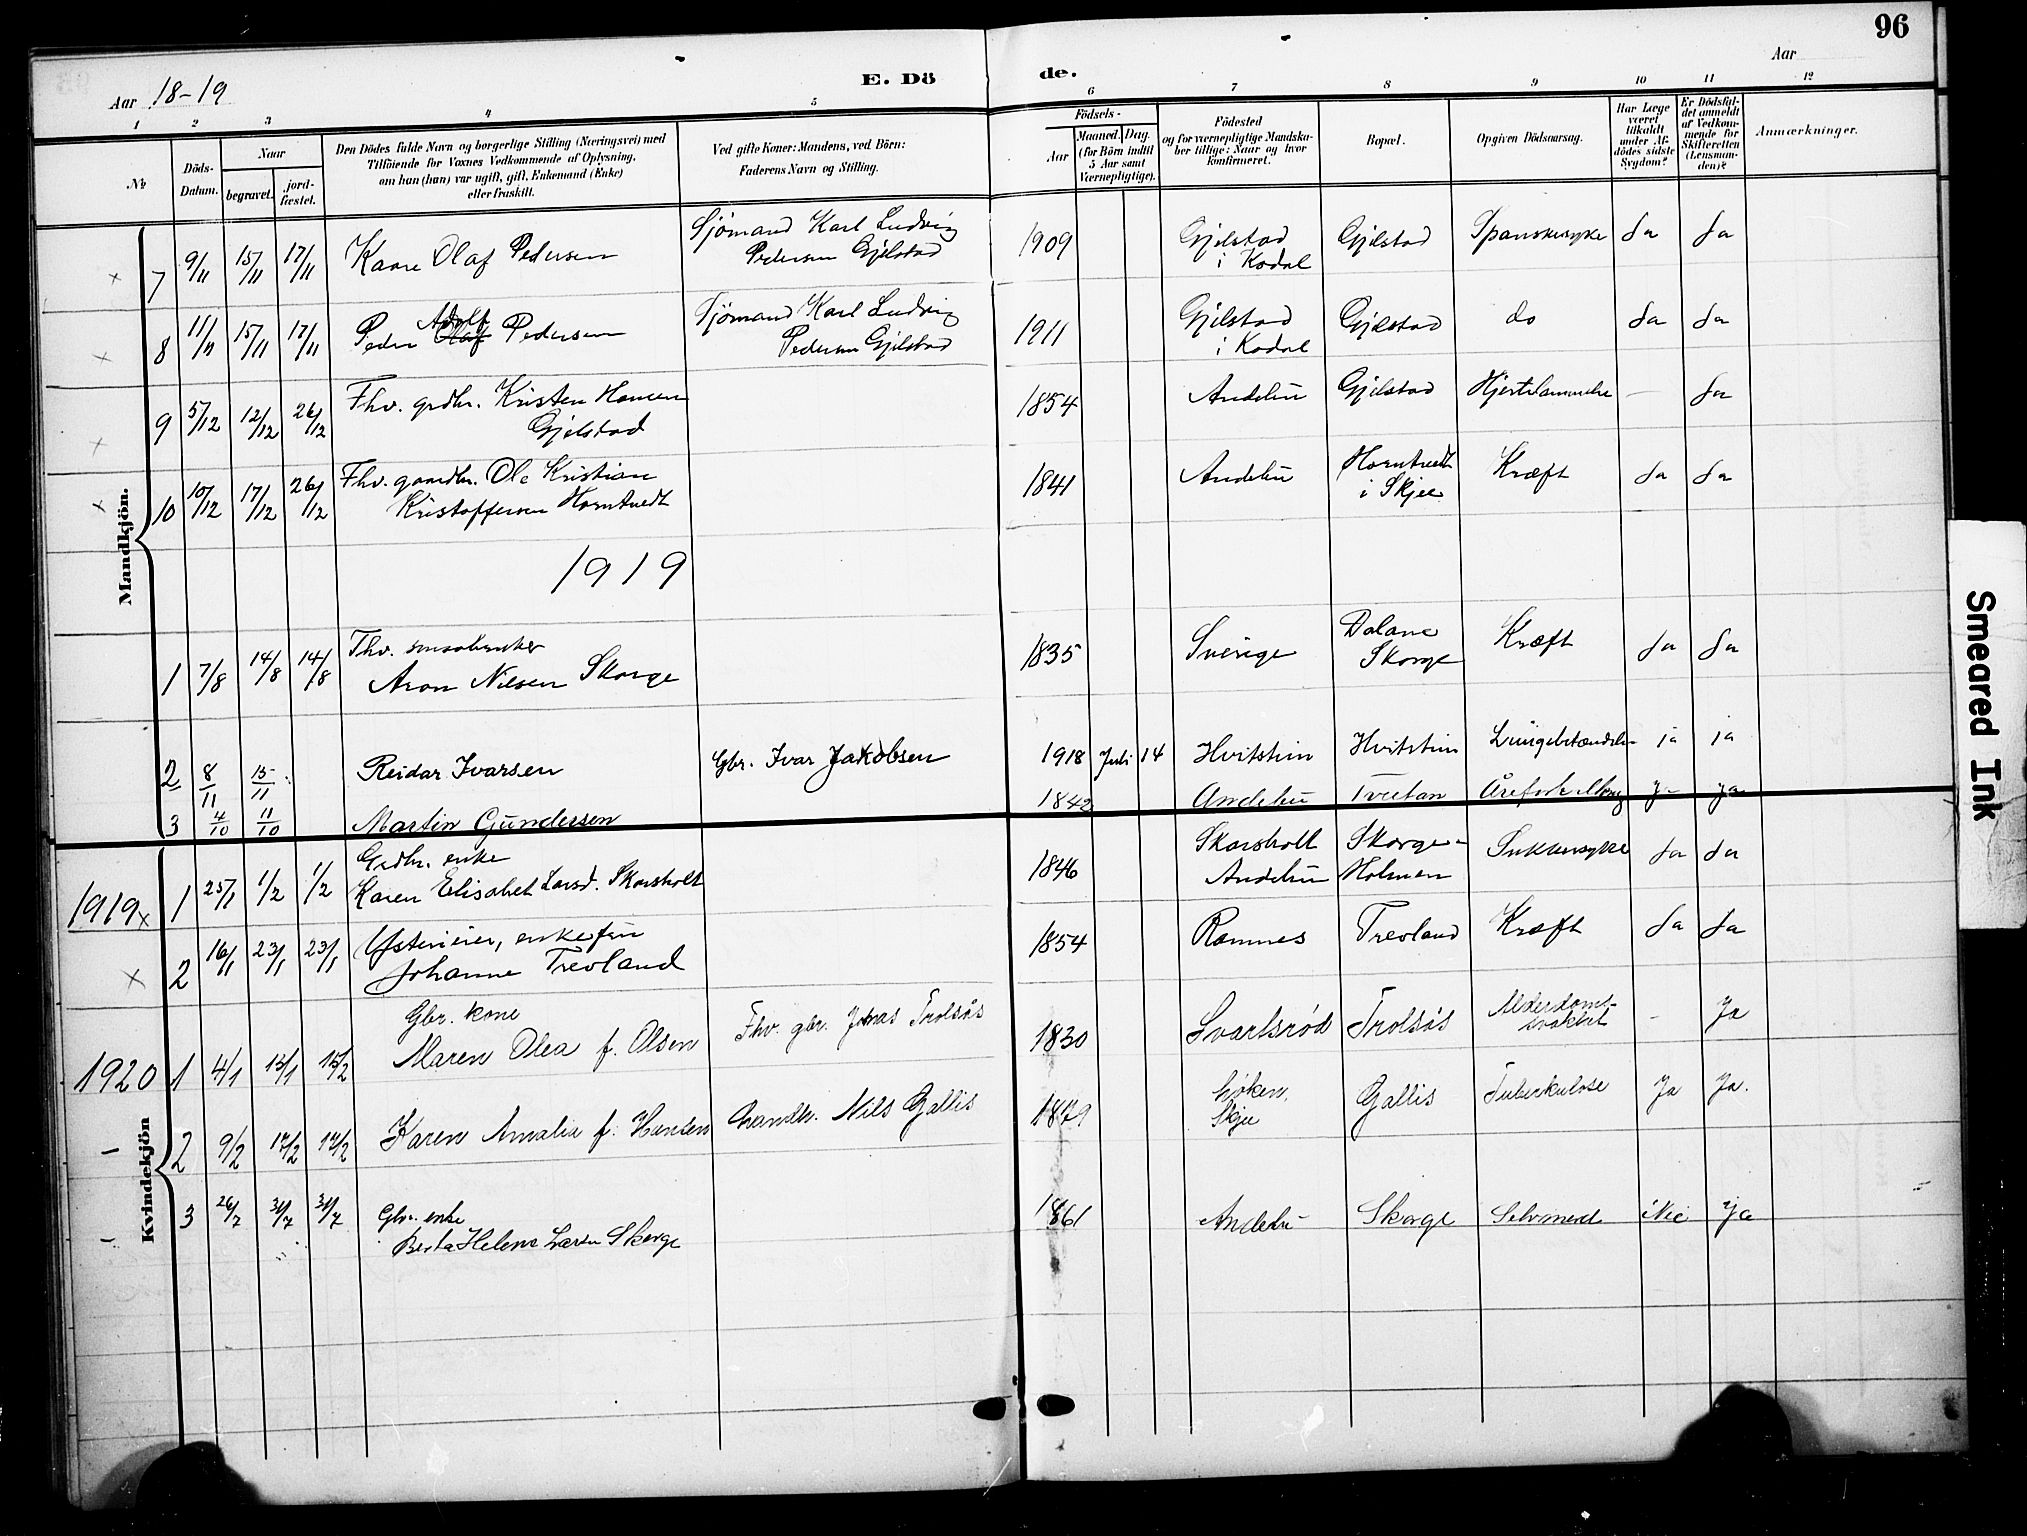 96
Aar 18-19
E. Dö de.
Aar
1 2 3 4 5 6 7 8 9 10 11 12
No
Döds-Datum.
Naar
begravet.
jord-fæstet.
Den Dödes fulde Navn og borgerlige Stilling (Næringsvei) med
Tilföiende for Voxnes Vedkommende af Oplysning,
om han (hun) var ugift, gift, Enkemand (Enke)
eller fraskilt.
Ved gifte Koner: Mandens, ved Börn:
Faderens Navn og Stilling.
Födsels-
Aar
Maaned. Dag.
(for Börn indtil
5 Aar samt
Værnepligtige).
Födested
og for værnepligtige Mandska-
ber tillige: Naar og hvor
konfirmeret.
Bopæl.
Opgiven Dödsaarsag.
Har Læge
været
tilkaldt
under Af-
dödes sidste
Sygdom?
Er Dödsfal-
det anmeldt
af Vedkom-
mende for
Skifteretten
(Lensman-
den)?
Anmærkninger.
Mandkjön.
x 7 9/11 15/11 17/11 Kaare Olaf Pedersen Sjömand Karl Ludvig Pedersen Gjelstad 1909 Gjelstad i Kodal Gjelstad Spanskesyke Ja Ja
x 8 11/11 15/11 17/11 Peder Adolf Olaf Pedersen Sjömand Karl Ludvig Pedersen Gjelstad 1911 Gjelstad i Kodal Gjelstad do Ja Ja
x 9 5/12 12/12 26/12 Fhv. grdbr. Kristen Hansen Gjelstad 1854 Andebu Gjelstad Hjertelammelse - Ja
x 10 10/12 17/12 26/12 Fhv. gaardbr. Ole Kristian Kristoffersen Horntvedt 1841 Andebu Horntvedt i Skjee Kræft Ja Ja
1919
1 7/8 14/8 14/8 Fhv. smaabruker Aron Nilsen Skorge 1835 Sverige Dalane Skorge Kræft Ja Ja
2 8/11 15/11 Reidar Ivarsen Gbr. Ivar Jakobsen 1918 Juli 14 Hvitstein Hvitstein Lungebetændelse ja ja
3 4/10 11/10 Martin Gundersen 1842 Andebu Tveitan ja ja
Kvindekjön
1919 x 1 25/1 1/2 1/2 Grdbr. enke Karen Elisabet Larsd. Skarsholt 1846 Skarsholt Andebu Skorge-Holmen Sukkersyke Ja Ja
x 2 16/1 23/1 23/1 Ysterieier, enkefru Johanne Trevland 1854 Ramnes Trevland Kræft Ja Ja
1920 1 4/1 13/1 15/2 Gbr. kone Maren Olea f. Olsen Fhv. gbr. Jonas Trolsås 1830 Svartsrød Trolsås Alderdoms-svakhet - Ja
- 2 9/2 17/2 17/2 Karen Amalia f. Hansen Nils Gallis 1879 Skjee Gallis Tuberkulose Ja Ja.
- 3 26/7 31/7 31/7 Gbr. enke Berta Helene Skorge 1861 Andebu Skorge Selvmord Nei Ja
Smeared Ink